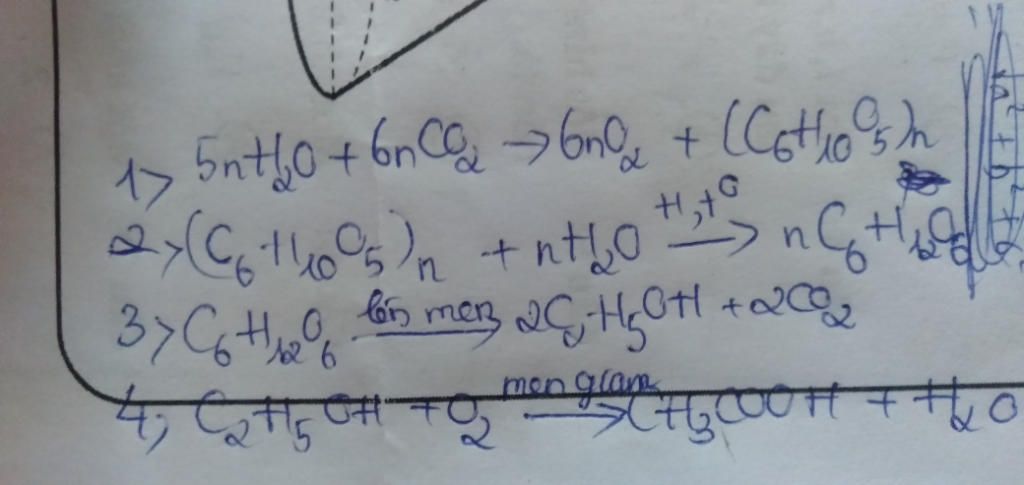 1> 5nH₂O + 6nCO₂ → 6nO₂ + (C₆H₁₀O₅)n
2> (C₆H₁₀O₅)n + nH₂O H,t⁰ → nC₆H₁₂O₆
3> C₆H₁₂O₆ lên men → 2C₂H₅OH + 2CO₂
4, C₂H₅OH + O₂ men giấm → CH₃COOH + H₂O